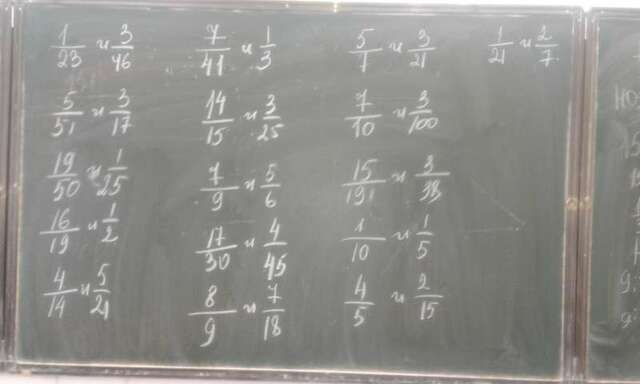 1/23 и 3/46 7/41 и 1/3 5/7 и 3/21 1/21 и 2/7
5/51 и 3/17 14/15 и 3/25 7/10 и 3/100
19/50 и 1/25 7/9 и 5/6 15/191 и 3/38
16/19 и 1/2 17/30 и 4/45 1/10 и 1/5
4/14 и 5/21 8/9 и 7/18 4/5 и 2/15